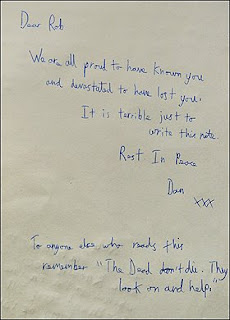 Dear Rob
We are all proud to have known you
and devastated to have lost you.
It is terrible just to
write this note.
Rest In Peace
Dan
xxx
To anyone else who reads this
remember "The Dead don't die. They
look on and help."